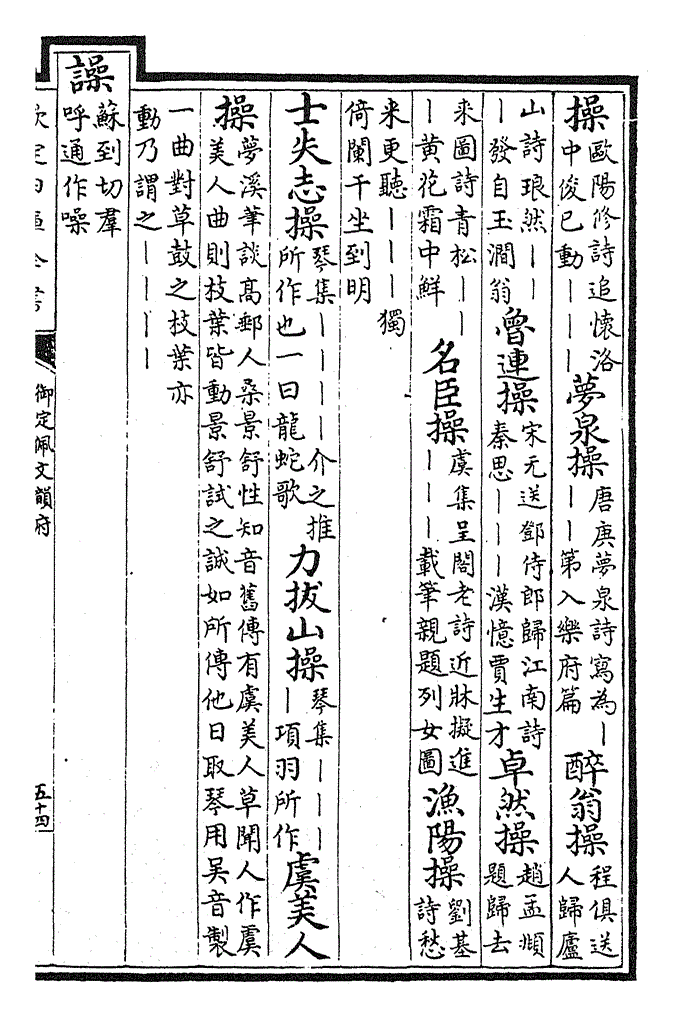 操歐陽修詩追懷洛中俊已動｜｜｜夢泉操唐庚夢泉詩寫為｜｜｜第入樂府篇醉翁操程俱送人歸廬
山詩琅然｜｜｜發自玉澗翁魯連操宋无送鄧侍郎歸江南詩秦思｜｜｜漢憶賈生才卓然操趙孟頫題歸去
来圖詩青松｜｜｜黄花霜中鮮名臣操虞集呈閣老詩近牀擬進｜｜｜載筆親題列女圖漁陽操劉基詩愁
来更聽｜｜｜獨倚闌干坐到明
士失志操琴集｜｜｜｜介之推所作也一曰龍蛇歌力拔山操琴集｜｜｜｜項羽所作虞美人
操夢溪筆談髙郵人桑景舒性知音舊傳有虞美人草聞人作虞美人曲則枝葉皆動景舒試之誠如所傳他日取琴用吴音製
一曲對草鼓之枝葉亦動乃謂之｜｜｜｜
譟蘇到切羣呼通作噪
御定佩文韻府
五十四